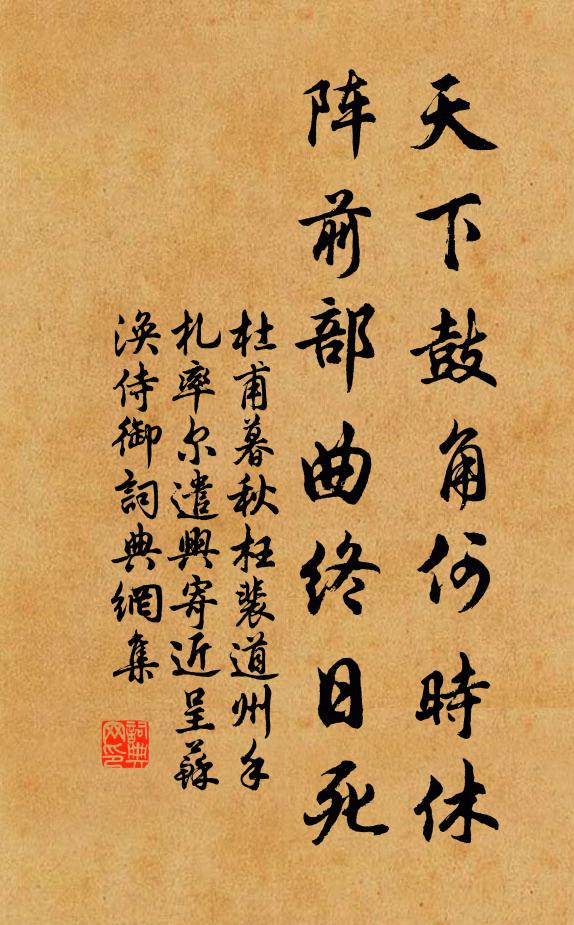 天下鼓角何時休
阵前部曲终日死
杜甫暮秋枉裴道州手
札率尔遣興寄近呈蘇
渙侍御詞典網集
詞典
网印